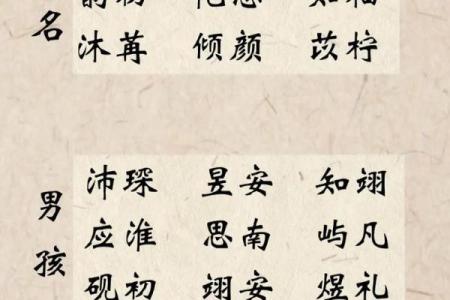 名
沐苒 倾颜 苡柠
男孩
沛琛 昱安 知翊
应淮 思南 屿凡
砚初 翊安 煜礼